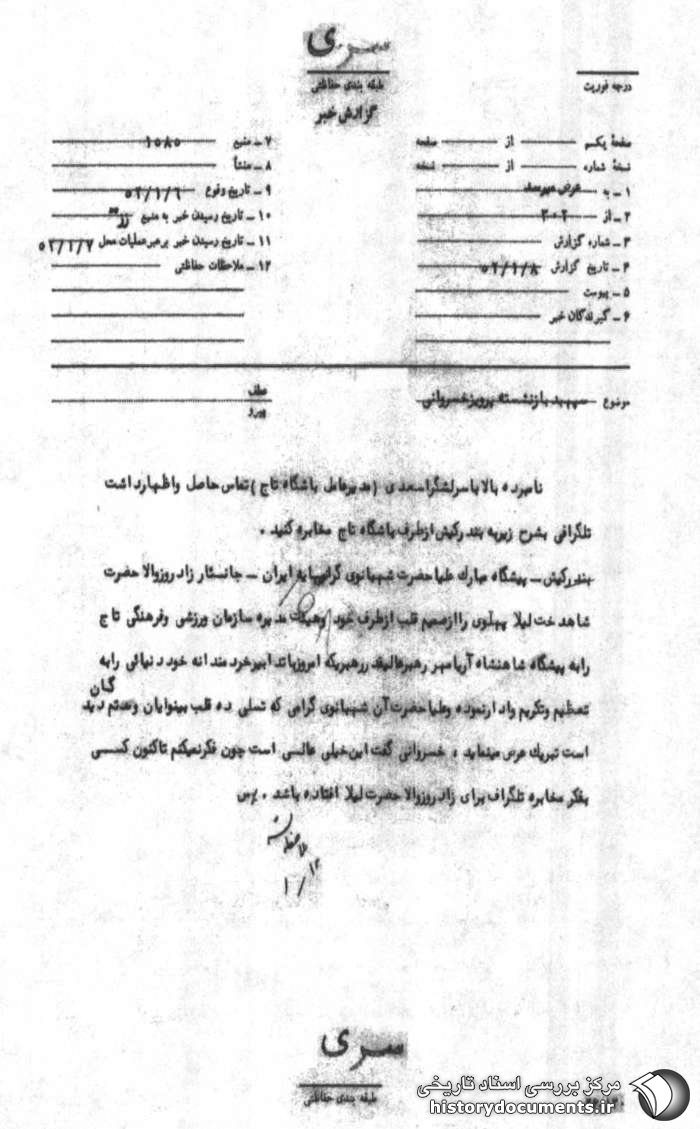 سری
طبقه بندی حفاظتی
گزارش خبر
درجه فوریت
صفحهٔ یکم از صفحه
نسخهٔ شماره از نسخه
۱ ـ به عرض میرسد
۲ ـ از ۳۰۲
۳ ـ شماره گزارش
۴ ـ تاریخ گزارش ۵۲/۱/۸
۵ ـ پیوست
۶ ـ گیرندگان خبر
۷ ـ منبع ۱۵۸۵
۸ ـ منشأ
۹ ـ تاریخ وقوع ۵۲/۱/۶
۱۰ ـ تاریخ رسیدن خبر به منبع
۱۱ ـ تاریخ رسیدن خبر به رهبر عملیات محل ۵۲/۱/۷
۱۲ ـ ملاحظات حفاظتی
موضوع سپهبد بازنشسته پرویز خسروانی
عطف
پیرو
نامبرده بالا با سرلشگر اسعدی (مدیرعامل باشگاه تاج) تماس حاصل واظهار داشت
تلگرافی بشرح زیر به بندرکیش از طرف باشگاه تاج مخابره کنید .
بندرکیش ـ پیشگاه مبارك علیاحضرت شهبانوی گرانمایه ایران ـ جانسثار زاد روز والاحضرت
شاهدخت لیلا پهلوی را از صمیم قلب از طرف خود وهیئت مدیره سازمان ورزشی وفرهنگی تاج
را به پیشگاه شاهنشاه آریامهر رهبر عالیقدر رهبریکه امروز با تدابیر خردمندانه خود دنیائی را به
تعظیم وتکریم وادار نموده وعلیاحضرت آن شهبانوی گرامی که تسلی ده قلب بینوایان وستم دیدگان
است تبریك عرض مینماید ، خسروانی گفت این خیلی عالسی است چون فکر نمیکنم تاکنون کسسی
بفکر مخابره تلگراف برای زاد روز والاحضرت لیلا افتاده باشد . س
سری
طبقه بندی حفاظتی
مرکز بررسی اسناد تاریخی
historydocuments.ir